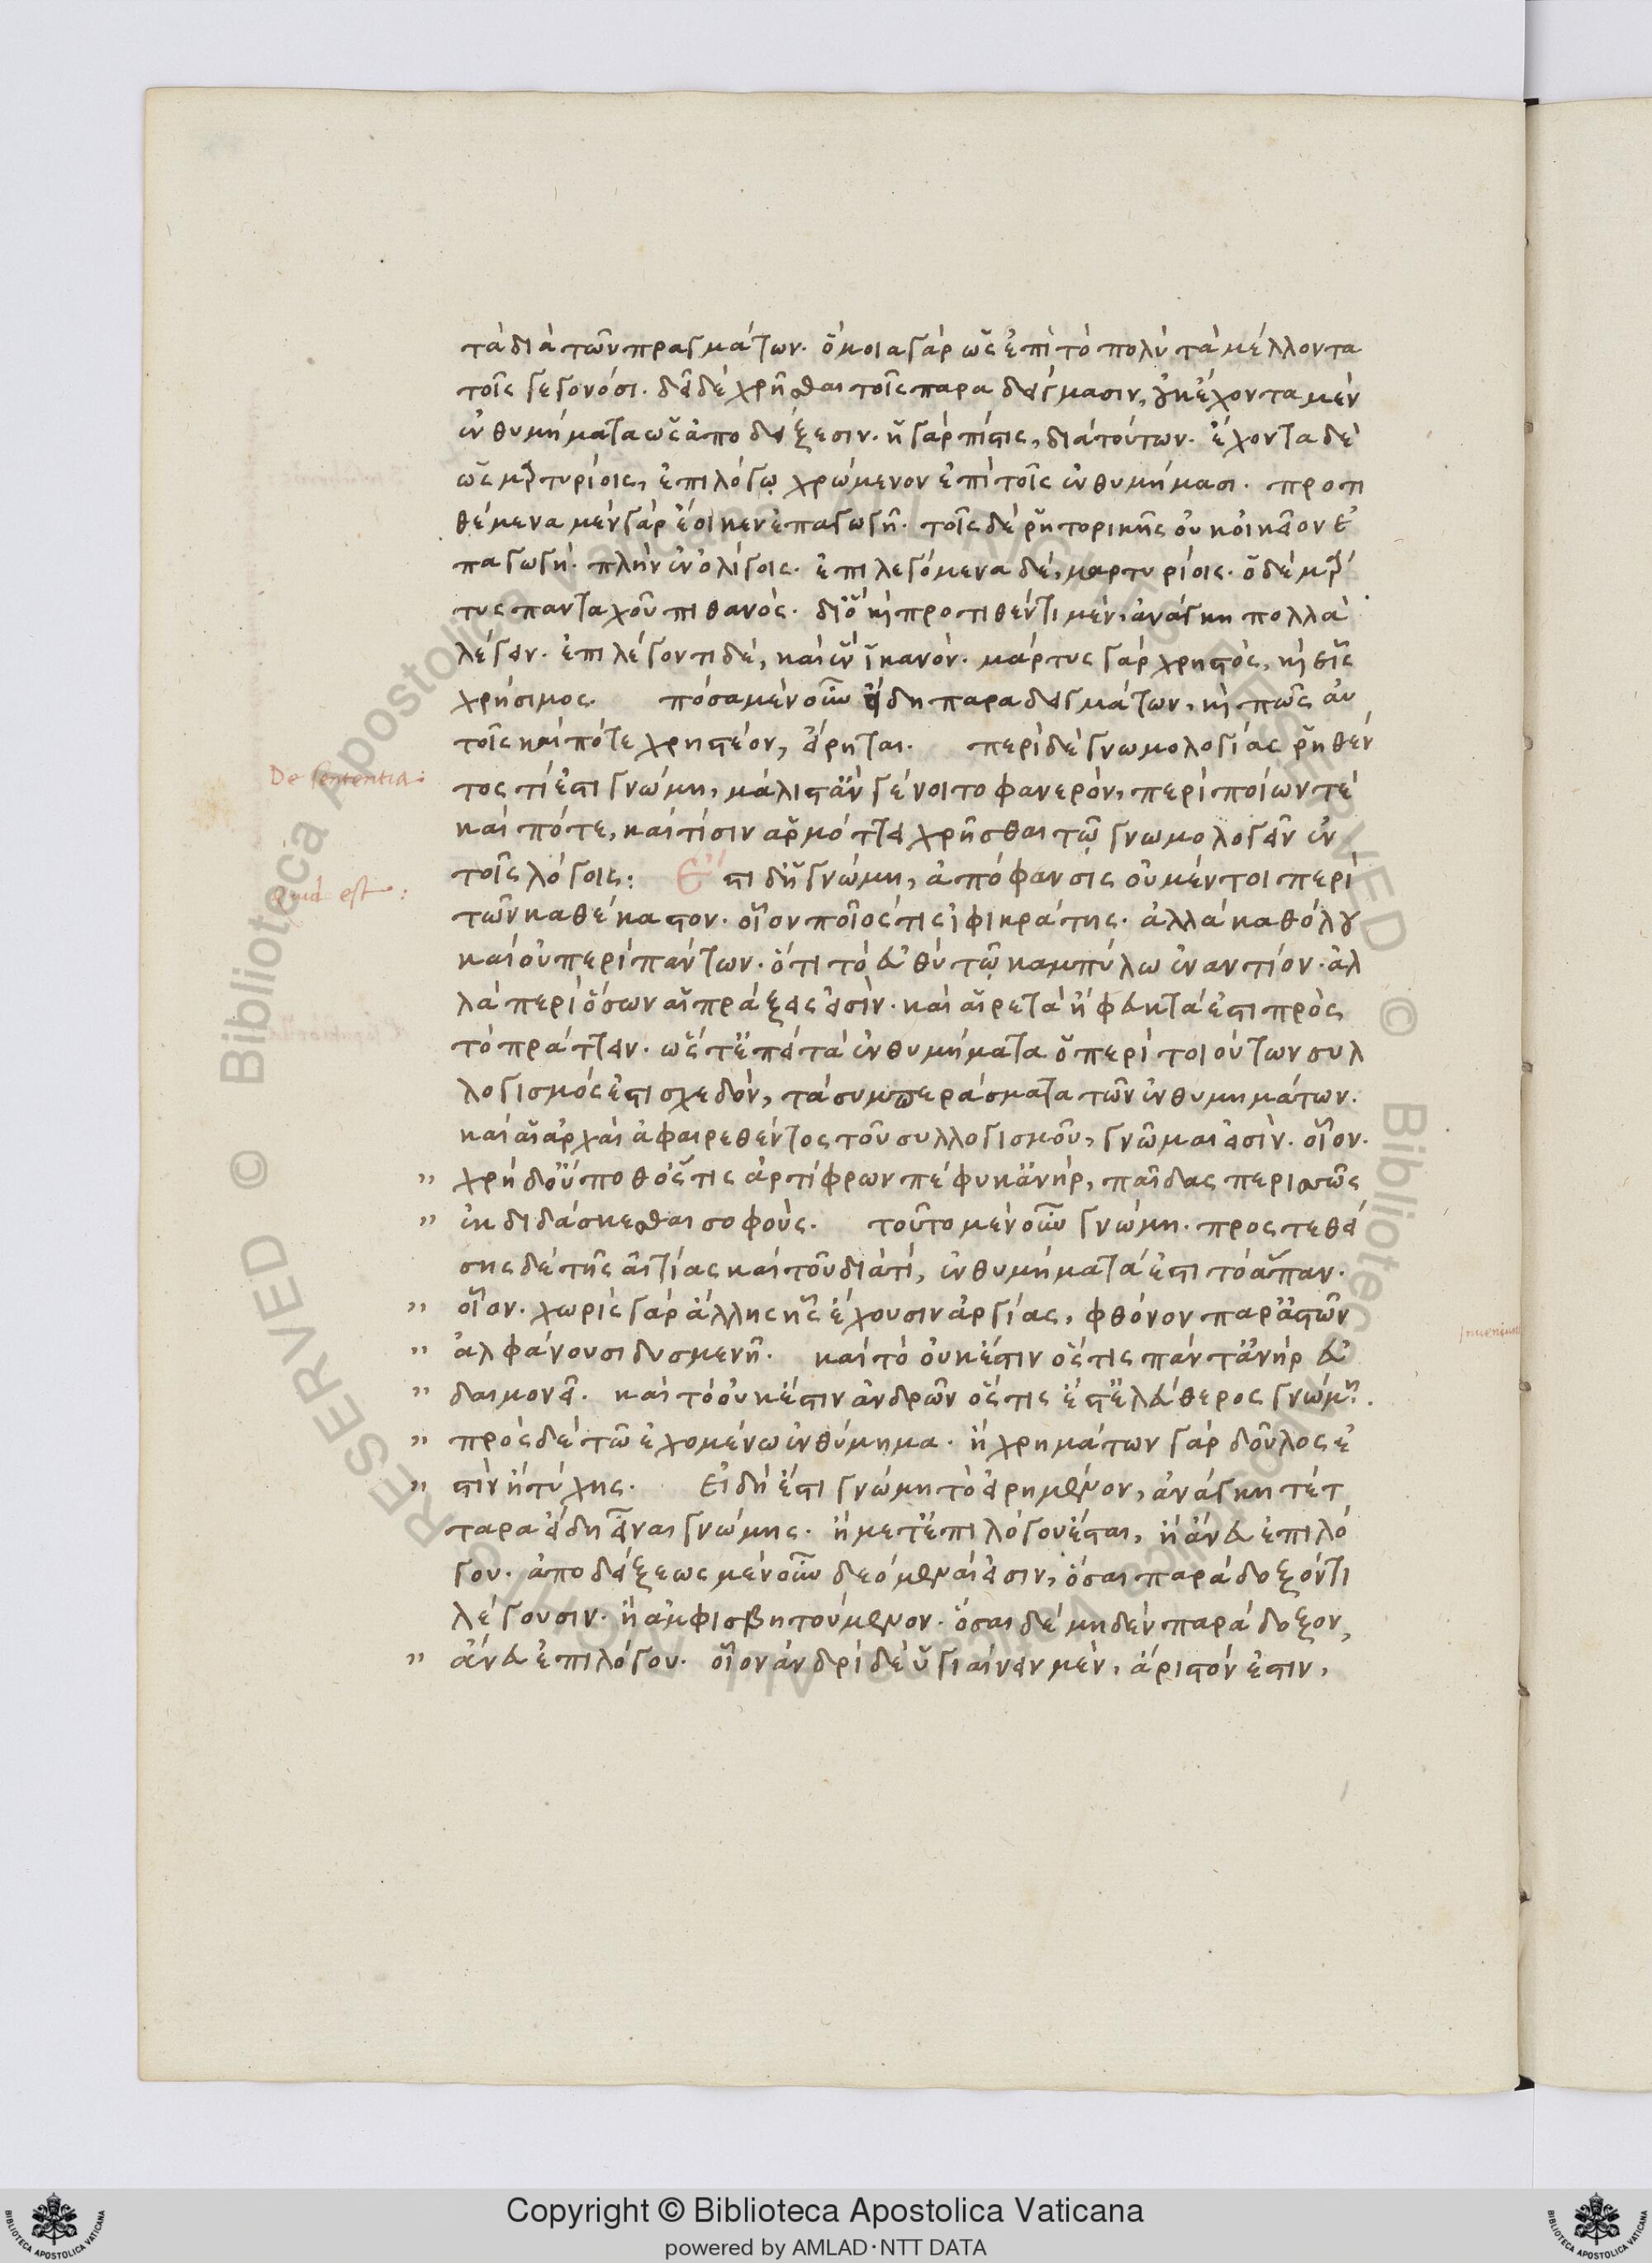 τὰ διὰ τῶν πραγμάτων. ὅμοια γὰρ ὡς ἐπὶ τὸ πολὺ τὰ μέλλοντα
τοῖς γεγονόσι. δεῖ δὲ χρῆσθαι τοῖς παραδείγμασιν, οὐκ ἔχοντα μὲν
ἐνθυμήματα ὡς ἀποδείξεσιν. ἡ γὰρ πίστις, διὰ τούτων. ἔχοντα δὲ
ὡς μρτυρίοις, ἐπιλόγῳ χρώμενον ἐπὶ τοῖς ἐνθυμήμασι. προτι
θέμενα μὲν γὰρ ἔοικεν ἐπαγωγῇ. τοῖς δὲ ῥητορικῆς οὐκ οἰκεῖον ἐ
παγωγή. πλὴν ἐν ὀλίγοις. ἐπιλεγόμενα δέ, μαρτυρίοις. ὁ δὲ μρ
τυς πανταχοῦ πιθανός. διὸ καὶ προτιθέντι μὲν, ἀνάγκη πολλὰ
λέγειν. ἐπιλέγοντι δέ, καὶ ἓν ἱκανόν. μάρτυς γὰρ χρηστός, καὶ εἷς
χρήσιμος. πόσα μὲν οὖν εἴδη παραδειγμάτων, καὶ πῶς αὐ
τοῖς καὶ πότε χρηστέον, εἴρηται. περὶ δὲ γνωμολογίας ῥηθέν
De sententia:
τος τί ἐστι γνώμη, μάλιστ' ἂν γένοιτο φανερόν, περὶ ποίων τὲ
καὶ πότε, καὶ τίσιν ἁρμόττει χρῆσθαι τῷ γνωμολογεῖν ἐν
Quid est:
τοῖς λόγοις: Ἔστι δὴ γνώμη, ἀπόφανσις οὐ μέντοι περὶ
τῶν καθέκαστον. οἷον ποῖός τις ἰφικράτης. ἀλλὰ καθόλου
καὶ οὐ περὶ πάντων. ὅτι τὸ εὐθὺ τῷ καμπύλω ἐναντίον. ἀλ
λὰ περὶ ὅσων αἱ πράξεις εἰσὶν. καὶ αἱρετὰ ἢ φευκτά ἐστι πρὸς
τὸ πράττειν. ὥστ' ἐπεὶ τὰ ἐνθυμήματα ὁ περὶ τοιούτων συλ
λογισμός ἐστι σχεδόν, τὰ συμπεράσματα τῶν ἐνθυμημάτων.
καὶ αἱ ἀρχαὶ ἀφαιρεθέντος τοῦ συλλογισμοῦ, γνῶμαι εἰσὶν. οἷον.
" χρὴ δ' οὔποθ' ὅς τις ἀρτίφρων πέφυκ' ἀνήρ, παῖδας περισσῶς
" ἐκδιδάσκεσθαι σοφούς. τοῦτο μὲν οὖν γνώμη. προς τεθεί
σης δὲ τῆς αἰτίας καὶ τοῦ διὰ τί, ἐνθυμήματά ἐστι τὸ ἅπαν.
" οἷον. χωρὶς γὰρ ἄλλης ἧς ἔχουσιν ἀργίας, φθόνον παρ' ἀστῶν
" ἀλφάνουσι δυσμενῆ. καὶ τὸ οὐκ ἔστιν ὅς τις πάντ' ἀνὴρ εὐ
" δαιμονεῖ. καὶ τὸ οὐκ ἔστιν ἀνδρῶν ὅς τις ἔστ' ἐλεύθερος γνώμη.
" πρὸς δὲ τῷ ἐχομένω ἐνθύμημα. ἢ χρημάτων γὰρ δοῦλος ἐ
" στὶν ἢ τύχης. Εἰ δή ἐστι γνώμη τὸ εἰρημένον, ἀνάγκη τέτ
ταρα εἴδη εἶναι γνώμης. ἢ μετ' ἐπιλόγου ἔσται, ἢ ἄνευ ἐπιλό
γου. ἀποδείξεως μὲν οὖν δεόμεναί εἰσιν, ὅσαι παράδοξόν τι
λέγουσιν. ἢ ἀμφισβητούμενον. ὅσαι δὲ μηδὲν παράδοξον,
" ἄνευ ἐπιλόγου. οἷον ἀνδρὶ δὲ ὑγιαίνειν μὲν, ἄριστόν ἐστιν,
Copyright © Biblioteca Apostolica Vaticana
powered by AMLAD·NTT DATA